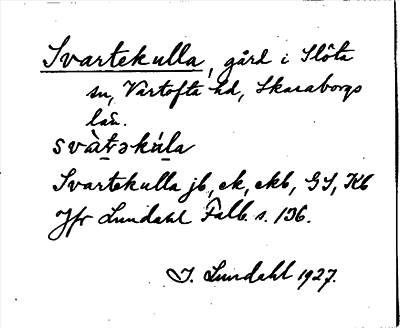 Svartekulla, gård i Slöta
sn, Vartofta hd, Skaraborgs
län.
svàt̠əkúl̠a
Svartekulla jb, ek, ekb, GS, Kb
Jfr Lundahl Falb. s. 136.
I. Lundahl 1927.